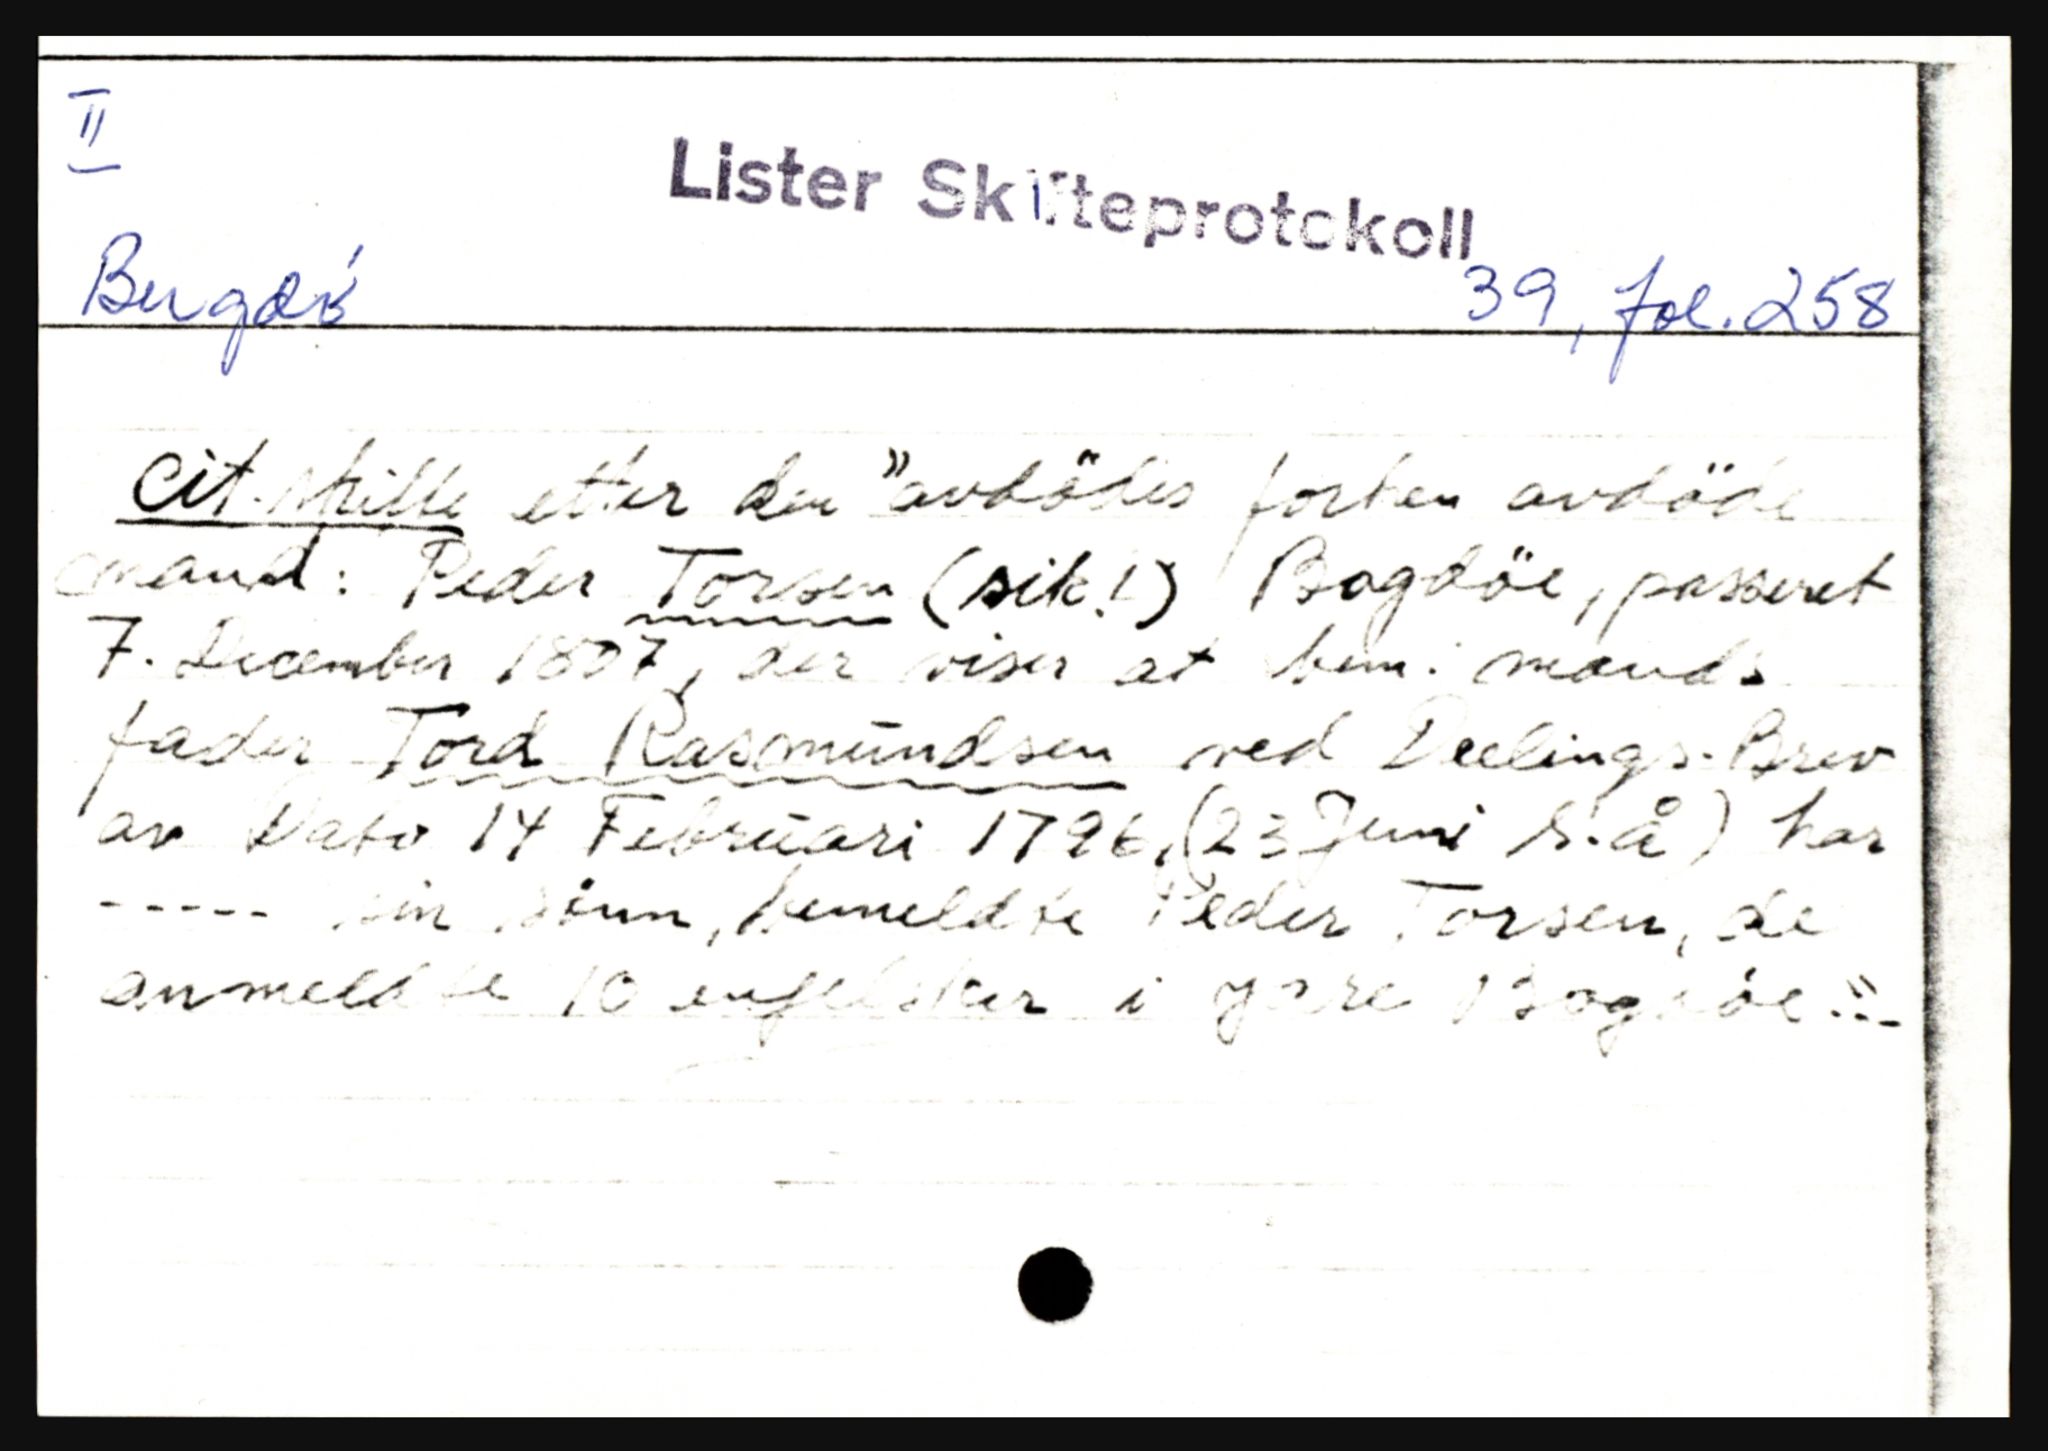 II
Lister Skifteprotokoll
Bergdö 39, fol. 258
Cit. skifte etter den "avdödes forhen avdöde
mand: Peder Torsen (sik!) Bogdöe, passeret
7. December 1807, der viser at bem: mands
fader Tord Rasmundsen ved Deelings-Brev
av Dato 14 Februari 1796, (23 Juni s.å) har
----- sin sönn, bemeldte Peder Torsen, de
anmeldte 10 engelsker i Ydre Bogdöe"---